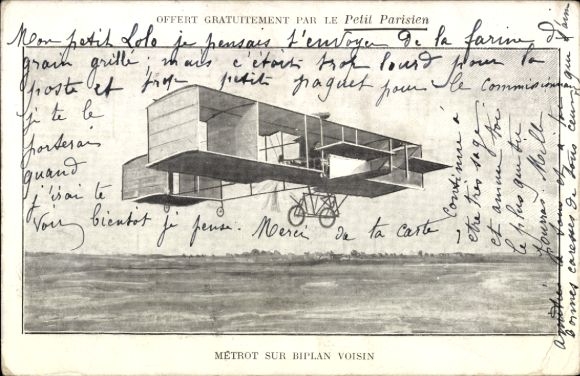 OFFERT GRATUITEMENT PAR LE Petit Parisien
Mon petit Lolo je pensais t'envoyer de la farine d
grain grillé; mais c'était trop lourd pour la
poste et trop petit paquet pour le commissionn
je te le
porterai
quand
j'irai te
voir bientot je pense. Merci de ta carte
continue à
être très sage
et amuse toi
le plus que tu
pourras Mille
amitiés à tous et à toi
bonnes caresses de tout cœur
MÉTROT SUR BIPLAN VOISIN